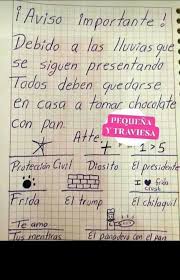 ¡Aviso Importante!
Debido a las lluvias que
se siguen presentando
Todos deben quedarse
en casa a tomar chocolate
con pan.
PEQUEÑA
Y TRAVIESA
Atte
1>5
Protección Civil Diosito El presidente
I ♥ frida
Frida El trump El chilaquil
Te amo
Tus mentiras El panadero con el pan